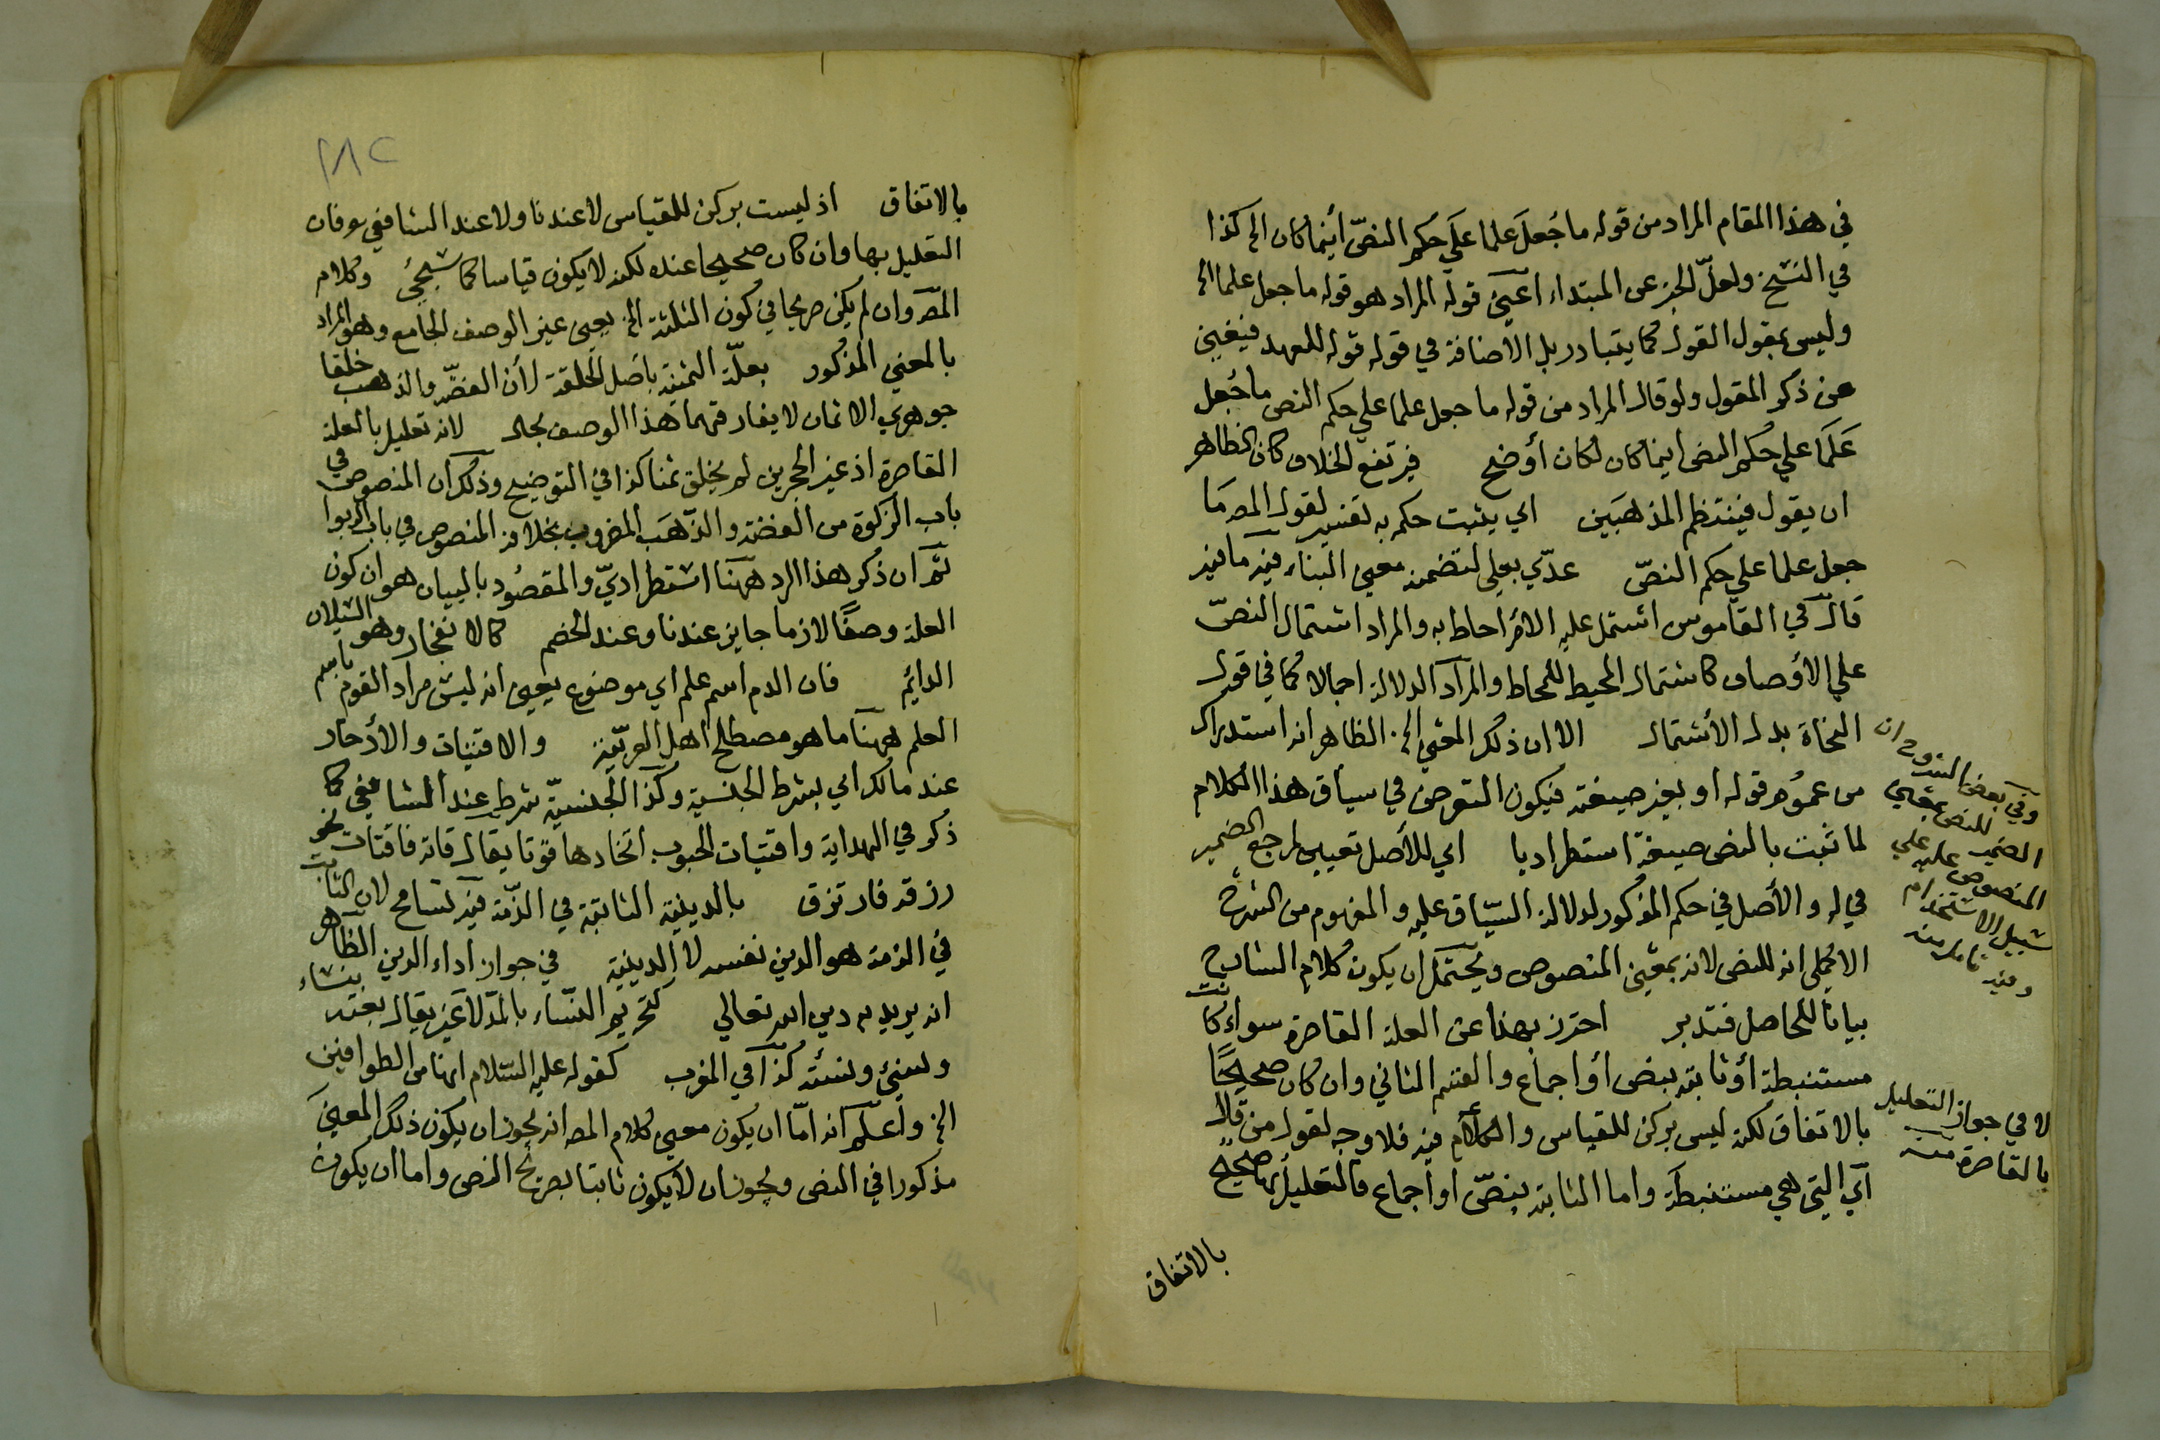 في هذا المقام المراد من قوله ما جُعلَ علما علَي حكم النصّ أينما كان الخ كذا
في النسَخ ولعلّ الخبر عن المبتداء اعَني قوله المراد هو قوله ما جعل علما الخ
وليس بمقول القول كما يتبادر بل الاضافة في قوله قوله للعهد فيغني
عن ذكر المقول ولو قال المراد من قوله ما جعل علما علي حكم النص ما جُعل
عَلمَا علي حُكم النص اينما كان لكان أوضح فيرتفع الخلاف كان الظاهر
ان يقول فينتظم المذهبَين اي يثبت حكمه به تفسير لقول المص مَا
جعل علما علي حكم النصّ عدّي بعلي لتضمنه معني البناء فيه ما فيه
قال في القاموس اشتمل عليه الأمر احاط به والمراد اشتمال النصّ
علي الأوصاف كاشتمال المحيط للمحاط والمرَاد الدلالة اجمالا كما في قول
النحاة بدل الأشتمال الا ان ذلك المعني الخ الظاهر انه استدراك
من عمُوم قوله او بغير صيغته فيكون التعرض في سيَاق هذا الكلام
لما ثبت بالنص صيغةً استطراديا اي للأصل تعيين لمرجع الضمير
في له والأصل في حكم المذكور لدلالة السيّاق عليه والمفهوم من الشرح
الاكملي انه للنص لانه بمعَني المنصوص ويحتمل ان يكون كلام الشارح
بيانا للحاصل فتدبر احترز بهذا عن العلة القاصرة سواء كانت
مستنبطة أو ثابتة بنص أو اجماع والقسم الثاني وان كان صحيحًا
بالاتفاق لكنه ليس بركن للقياس والكلام فيه فلا وجه لقول من قال
أي التي هي مستنبطة واما الثابتة بنصّ او اجماع فالتعليل بها صحيح
بالاتفاق
وفي بعض الشروح ان
الضمير للنص بمعني
المنصوص عليه علي
سبيل الاستخدام
وفيه تامل منه
لا في جواز التعليل
بالقاصرة منه
٢٨٢
بالاتفاق اذ ليست بركن للقياس لا عندنا ولا عند الشافعي فان
التعليل بها وان كان صحيحا عنده لكنه لا يكون قياسا كما سَيجئ وكلام
المص وان لم يكن صريحا في كون الثلثة الخ يعني عين الوصف الجامع وهو المراد
بالمعني المذكور بعلّة الثمنية باصل الخلقة لأن الفضّة والذهب خلقا
جوهري الاثمان لا يفارقهما هذا الوصف بحال لانه تعليل بالعلة
القاصرة اذ غير الحجرين لم يخلق ثمنا كذا في التوضيح وذلك ان المنصوص في
باب الزكوة من الفضة والذّهَب المضروب بخلافه المنصوص في باب الربوا
ثمّ ان ذكر هذا الرد ههنا استطراديّ والمقصُود بالبيان هو ان كون
العلة وصفًا لازما جايز عندنا وعند الخصم كالانفجار وهو السَيلان
الدائم فان الدم اسم علم اي موضوع يعني انه ليس مراد القوم باسم
العلم ههنا ما هو مصطلح اهل العربيّة والاقتيات والأدخار
عند مالك اي بشرط الجنسية وكذا الجنسيّة شرط عند الشافعي كما
ذكر في الهداية واقتيات الحبوب اتخادها قوتا يقال قاته فاقتات نحو
رزقه فارتزق بالدينية الثابتة في الذّمة فيه تسامح لان الثابت
في الذمة هو الدين نفسه لا الدينية في جواز اداء الدين الظاهر
انه يريد به دين الله تعالي كتحريم النسَاء بالمدّ لا غير يقال بعته بنسَاء
ونسئ ونسئة كذا في المغرب كقوله عليه السّلام انها من الطوافين
الخ واعلم انه امّا ان يكون معني كلام المص انه يجوز ان يكون ذلك المعني
مذكورا في النص ويجوز ان لا يكون ثابتا بصريح النص واما ان يكون